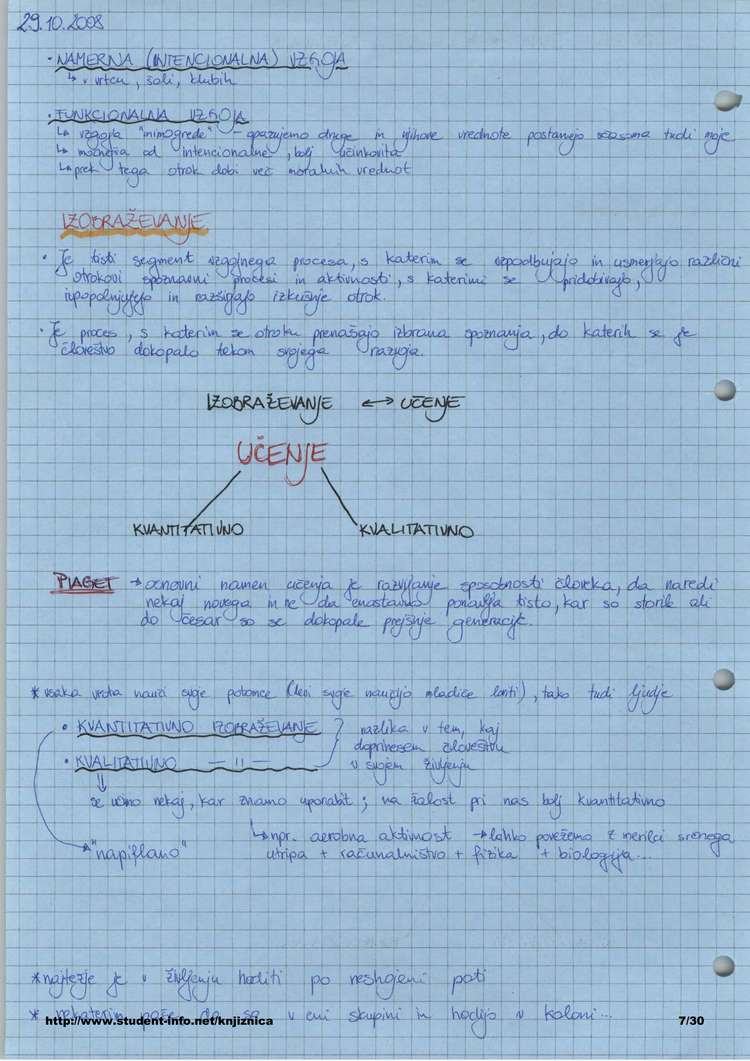 29.10.2008
• NAMERNA (INTENCIONALNA) VZGOJA
↳ v vrtcu, šoli, klubih
• FUNKCIONALNA VZGOJA
↳ vzgoja "mimogrede" - opazujemo druge in njihove vrednote postanejo sčasoma tudi moje
↳ močnejša od intencionalne, bolj učinkovita
↳ prek tega otrok dobi več moralnih vrednot
IZOBRAŽEVANJE
• Je tisti segment vzgojnega procesa, s katerim se vzpodbujajo in usmerjajo različni
otrokovi spoznavni procesi in aktivnosti, s katerimi se pridobivajo,
izpopolnjujejo in razširjajo izkušnje otrok.
• Je proces, s katerim se otroku prenašajo izbrana spoznanja, do katerih se je
človeštvo dokopalo tekom svojega razvoja.
IZOBRAŽEVANJE ↔ UČENJE
UČENJE
KVANTITATIVNO KVALITATIVNO
PIAGET → osnovni namen učenja je razvijanje sposobnosti človeka, da naredi
nekaj novega in ne da enostavno ponavlja tisto, kar so storile ali
do česar so se dokopale prejšnje generacije.
* vsaka vrsta nauči svoje potomce (levi svoje naučijo mladiče loviti), tako tudi ljudje
• KVANTITATIVNO IZOBRAŽEVANJE } razlika v tem, kaj
doprinesem človeštvu
• KVALITATIVNO — 11 — v svojem življenju
⇓
se učimo nekaj, kar znamo uporabit; na žalost pri nas bolj kvantitativno
↳ npr. aerobna aktivnost → lahko povežemo z merilci srčnega
"napiflano" utripa + računalništvo + fizika + biologija...
* najtežje je v življenju hoditi po neshojeni poti
* nekaterim paše da so v eni skupini in hodijo v koloni...
http://www.student-info.net/knjiznica 7/30